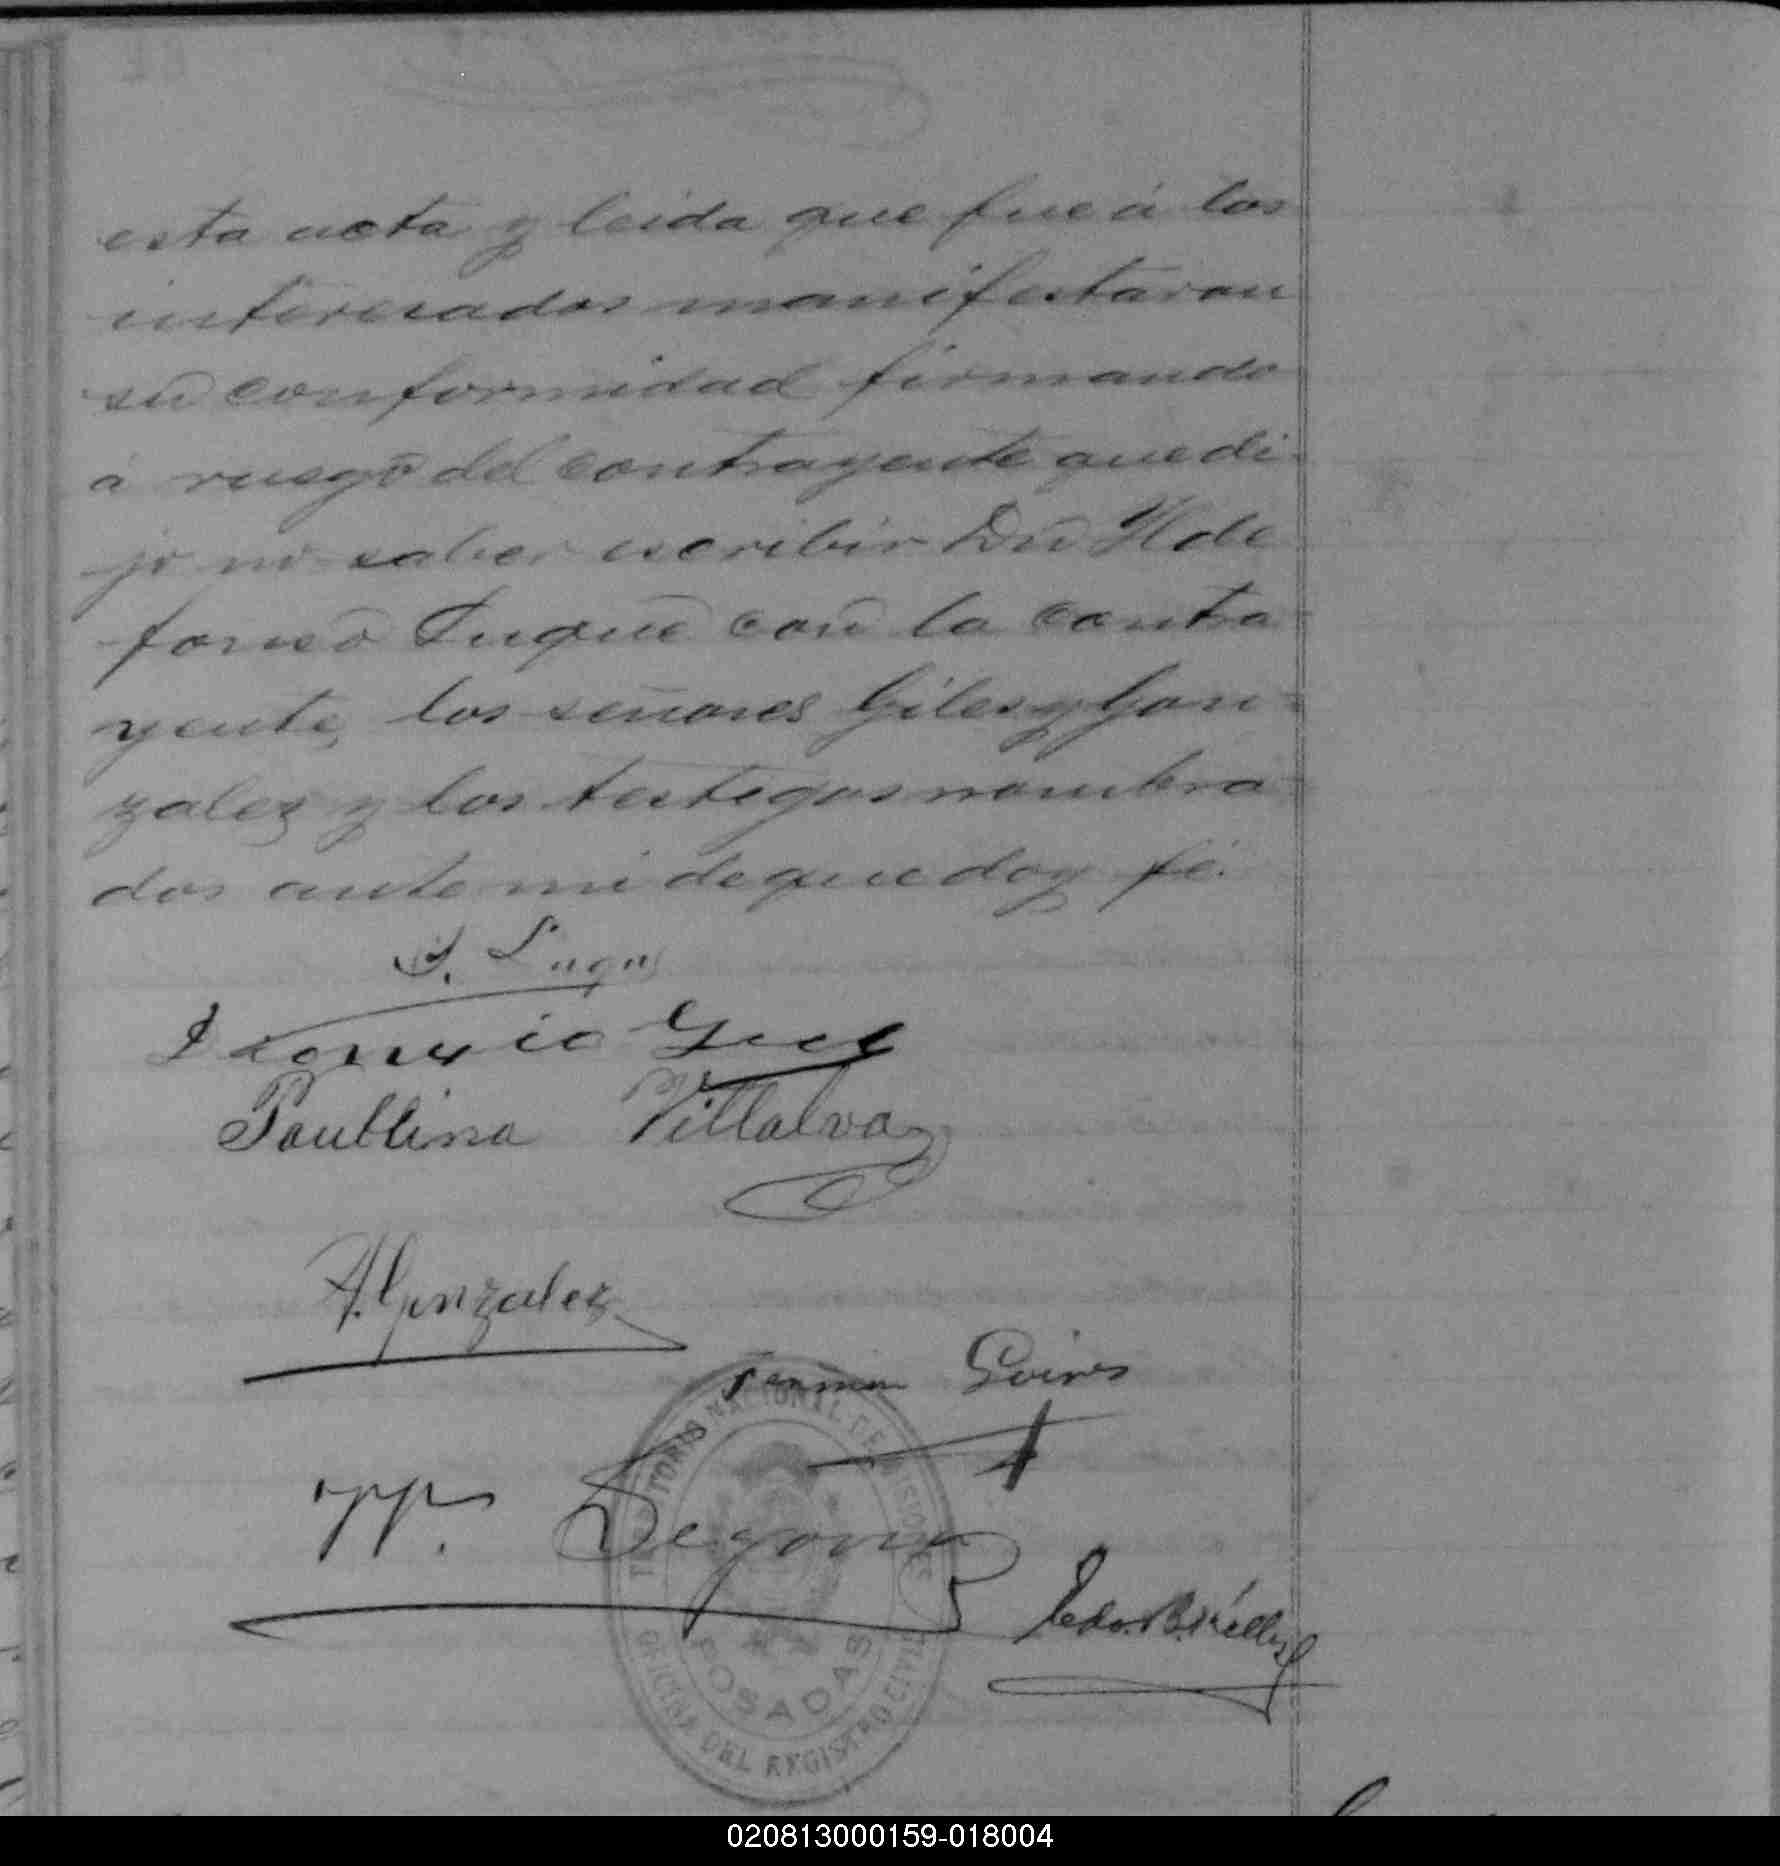 esta acta y leida que fue á los
interesados manifestaron
su conformidad firmando
á ruego del contrayente que di-
jo no saber escribir Dn Ilde
fonso Luque con la contra-
yente, los señores Giles y Gon-
zalez y los testigos nombra-
dos ante mi de que doy fé.
I. Luque
Paublina Villalva
A. Gonzalez
TERRITORIO NACIONAL DE MISIONES
POSADAS
OFICINA DEL REGISTRO CIVIL
020813000159-018004